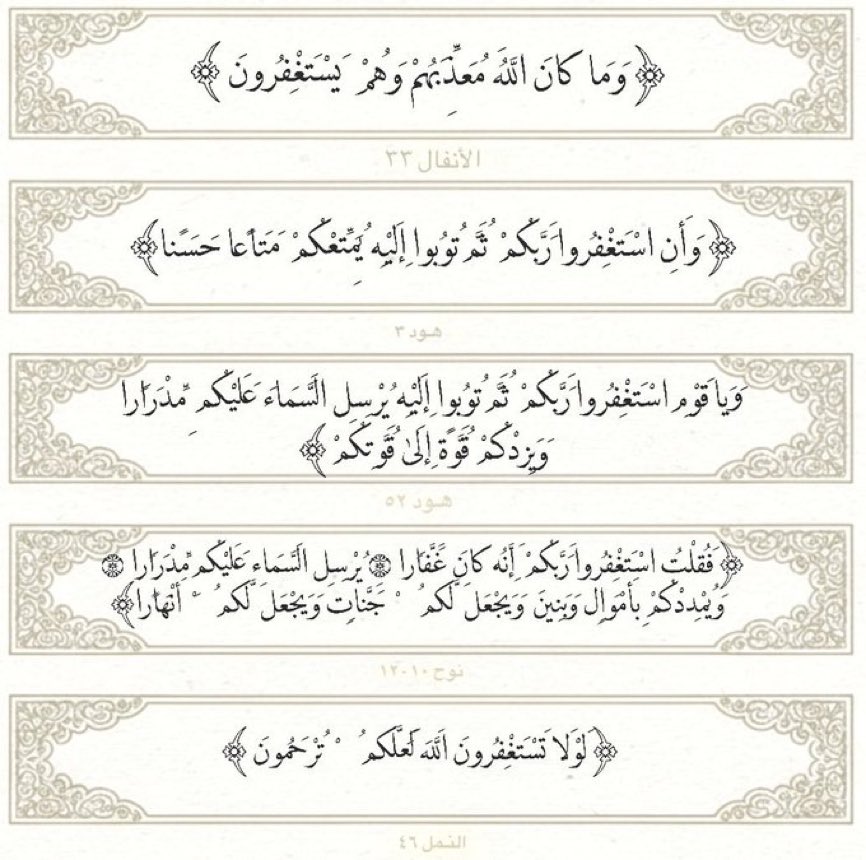 ﴿ وَمَا كَانَ اللَّهُ مُعَذِّبَهُمْ وَهُمْ يَسْتَغْفِرُونَ ﴾
الأنفال ٣٣
﴿ وَأَنِ اسْتَغْفِرُوا رَبَّكُمْ ثُمَّ تُوبُوا إِلَيْهِ يُمَتِّعْكُمْ مَتَاعًا حَسَنًا ﴾
هود ٣
وَيَا قَوْمِ اسْتَغْفِرُوا رَبَّكُمْ ثُمَّ تُوبُوا إِلَيْهِ يُرْسِلِ السَّمَاءَ عَلَيْكُم مِّدْرَارًا
وَيَزِدْكُمْ قُوَّةً إِلَىٰ قُوَّتِكُمْ ﴾
هود ٥٢
﴿ فَقُلْتُ اسْتَغْفِرُوا رَبَّكُمْ إِنَّهُ كَانَ غَفَّارًا ۞ يُرْسِلِ السَّمَاءَ عَلَيْكُم مِّدْرَارًا ۞
وَيُمْدِدْكُمْ بِأَمْوَالٍ وَبَنِينَ وَيَجْعَل لَّكُمْ جَنَّاتٍ وَيَجْعَل لَّكُمْ أَنْهَارًا ﴾
نوح ١٠-١٢
﴿ لَوْلَا تَسْتَغْفِرُونَ اللَّهَ لَعَلَّكُمْ تُرْحَمُونَ ﴾
النمل ٤٦